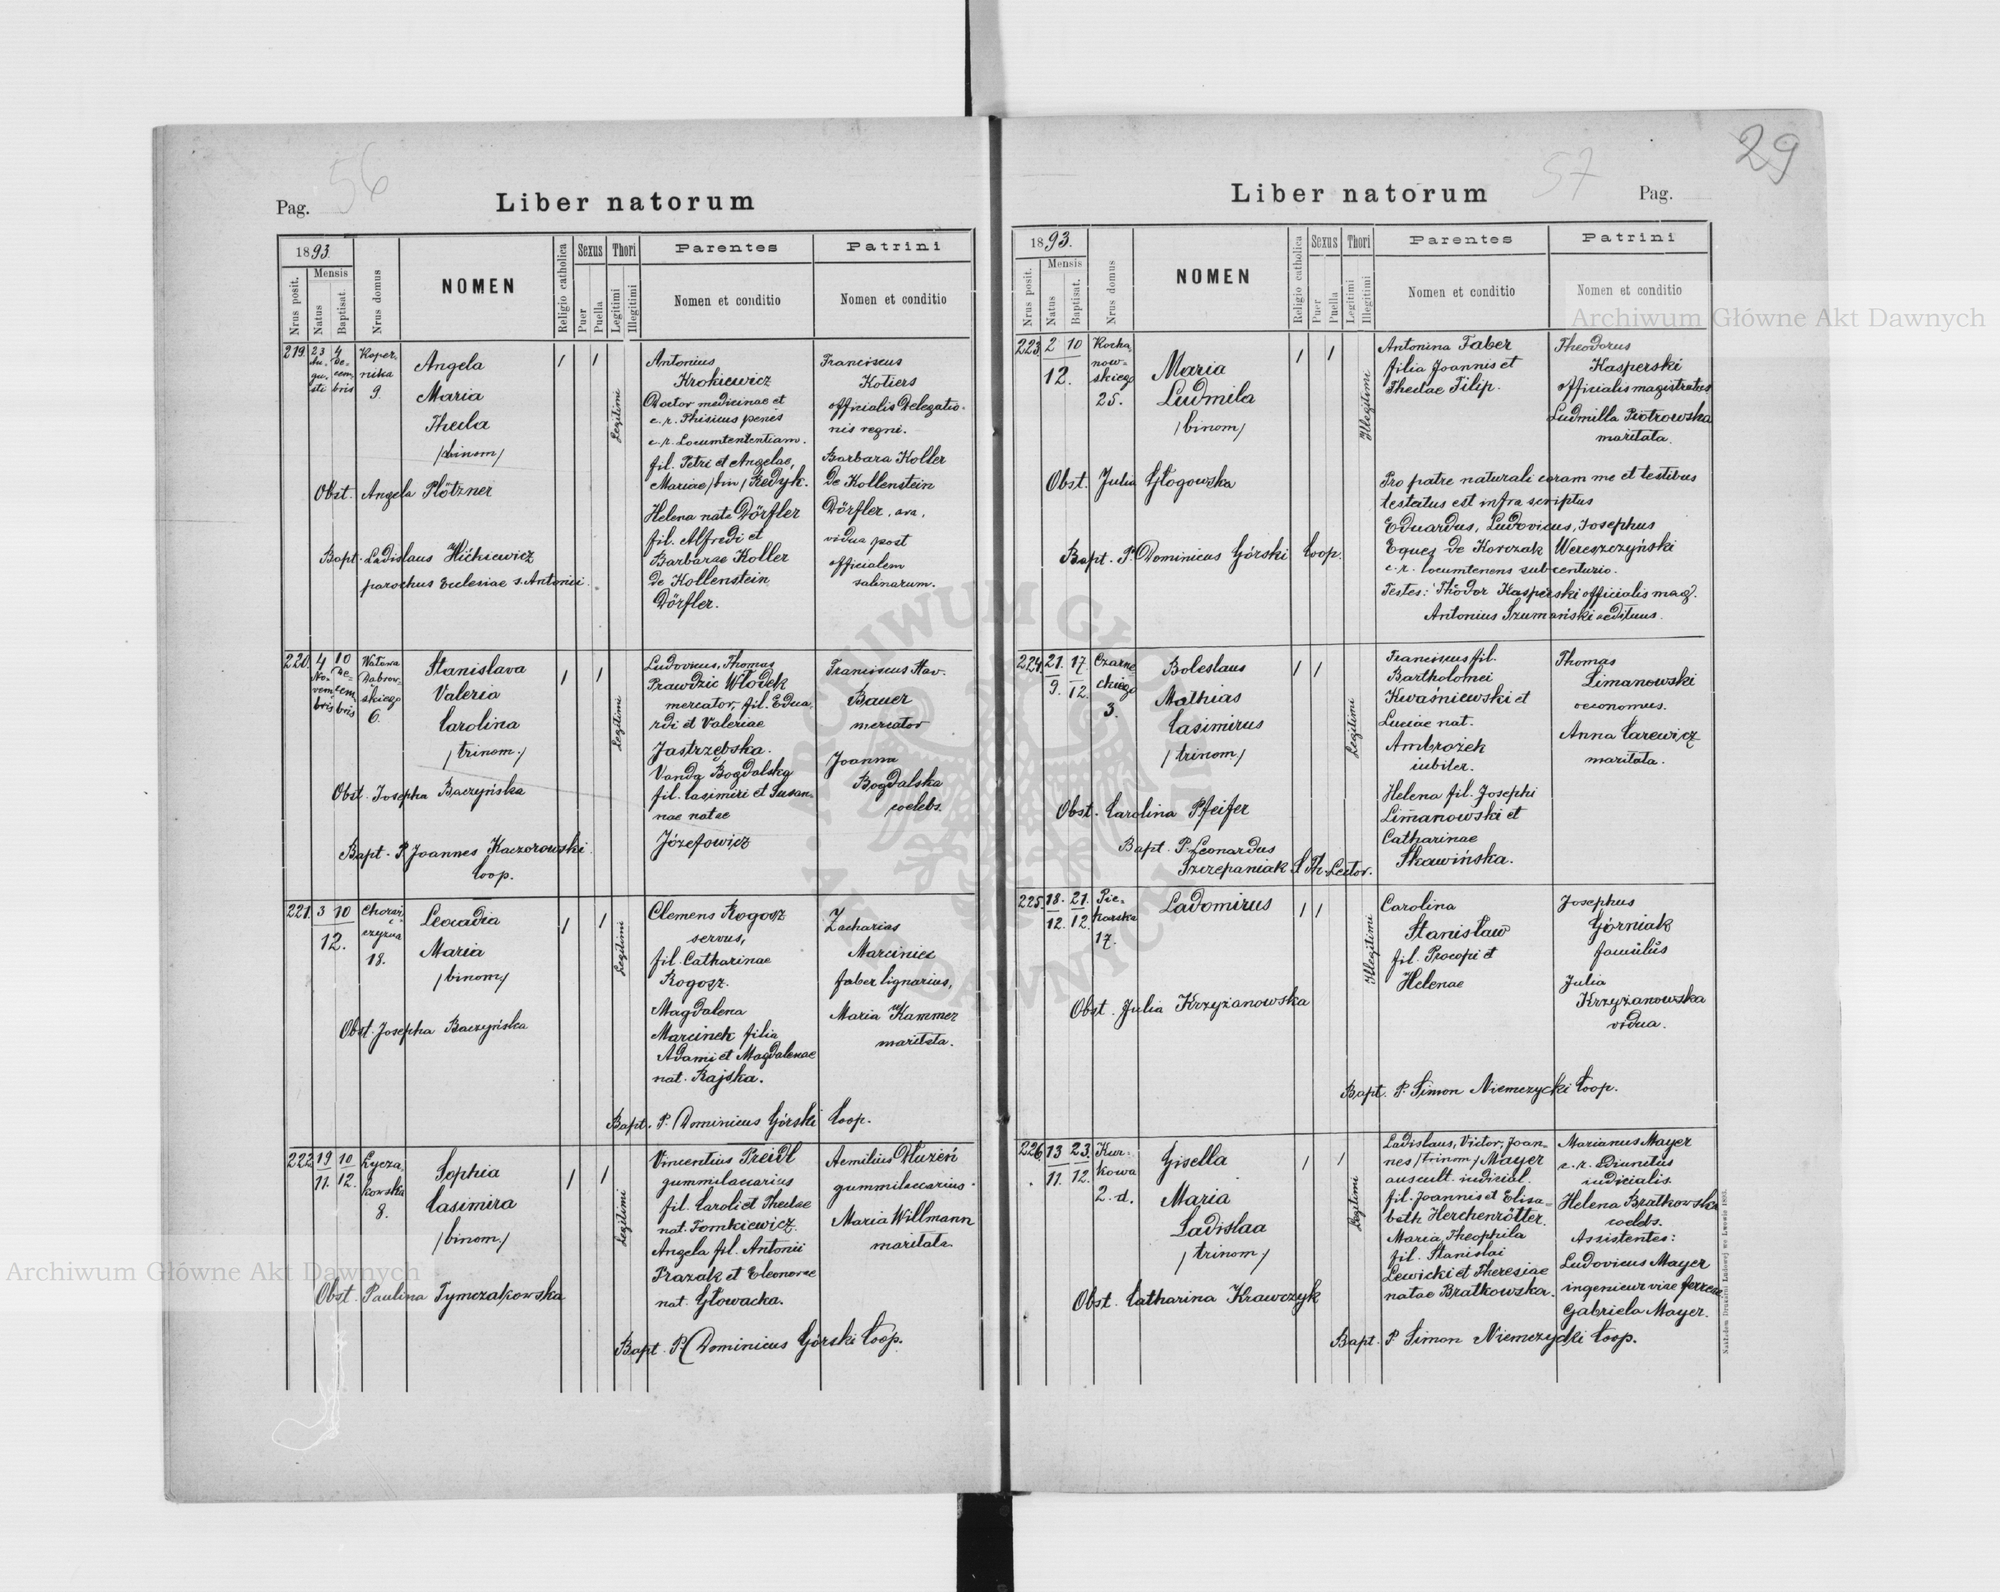 56
Pag.
Liber natorum
1893.
Nrus posit.
Mensis
Natus
Baptisat.
Nrus domus
NOMEN
Religio catholica
Sexus
Puer
Puella
Thori
Legitimi
Illegitimi
Parentes
Nomen et conditio
Patrini
Nomen et conditio
219.
23
Au-
gu-
sti
4
De-
cem-
bris
Koper-
nika
9.
Angela
Maria
Thecla
/binom/
Obst. Angela Plötzner
Bapt. Ladislaus
parochus Ecclesiae s. Antonii.
1
1
Legitimi
Antonius
Krokiewicz
Doctor medicinae et
c. r. Phisicus penes
c. r. Locumtententiam.
fil. Petri et Angelae,
Mariae /bin/ Redyk.
Helena nate Dörfler
fil. Alfredi et
Barbarae Koller
de Kollenstein
Dörfler.
Franciscus
Kotiers
officialis Delegatio-
nis regni.
Barbara Koller
de Kollenstein
Dörfler, ava,
vidua post
officialem
salinarum.
220.
4
No-
vem-
bris
10
De-
cem-
bris
Watowa
Dabrow-
skiego
6.
Stanislava
Valeria
Carolina
/trinom./
Obst. Josepha Baczyńska
Bapt. P. Joannes Kaczorowski
Coop.
1
1
Legitimi
Ludovicus, Thomas
Prawdzic Włodek
mercator, fil. Edua,
rdi et Valeriae
Jastrzębska.
Vanda Bogdalska
fil. Casimiri et Susan-
nae natae
Józefowicz
Franciscus Xav.
Bauer
mercator
Joanna
Bogdalska
coelebs.
221.
3
10
12.
18.
Leocadia
Maria
/binom/
Obst. Josepha Baczyńska
1
1
Legitimi
Clemens Rogosz
servus,
fil. Catharinae
Rogosz.
Magdalena
Marcinek filia
Adami et Magdalenae
nat. Rajska.
Bapt. P. Dominicus Górski Coop.
Zacharias
Marciniec
faber lignarius,
Maria Kammer
maritata.
222.
19
11.
10
12.
Łycza,
kowska
8.
Sophia
Casimira
/binom/
Obst. Paulina Tymczakowska
1
1
Legitimi
Vincentius Preidl
gummilaccarius
fil. Caroli et Theclae
nat. Tomkiewicz.
Angela fil. Antonii
Prazak et Eleonorae
nat. Głowacka.
Bapt. P. Dominicus Górski Coop.
Aemilius Dłużeń
gummilaccarius.
Maria Willmann
maritata.
29
57
Liber natorum
Pag.
1893.
Nrus posit.
Mensis
Natus
Baptisat.
Nrus domus
NOMEN
Religio catholica
Sexus
Puer
Puella
Thori
Legitimi
Illegitimi
Parentes
Nomen et conditio
Patrini
Nomen et conditio
223.
2
10
12.
Kocha,
now-
skiego
25.
Maria
Ludmila
/binom/
Obst. Julia Głogowska
Bapt. P. Dominicus Górski Coop.
1
1
Illegitimi
Antonina Faber
filia Joannis et
Theclae Filip.
Theodorus
Kasperski
officialis magistratus
Ludmilla Piotrowska
maritata.
Pro patre naturali coram me et testibus
testatus est infra scriptus
Eduardus, Ludovicus, Josephus
Eques de Korczak Wereszczyński
c. r. locumtenens subcenturio.
Testes: Thódor Kasperski officialis mag.
Antonius Szumański aedituus.
224.
21.
9.
17.
12.
Czarne
ckiego
3.
Boleslaus
Mathias
Casimirus
/trinom/
Obst. Carolina Pfeifer
Bapt. P. Leonardus
Szczepaniak S. Th. Lector.
1
1
Legitimi
Franciscus fil.
Bartholomei
Kwaśniewski et
Luciae nat.
Ambrożek
iubiler.
Helena fil. Josephi
Limanowski et
Catharinae
Skawińska.
Thomas
Limanowski
oeconomus.
Anna Carewicz
maritata.
225.
18.
12.
21.
12.
Pie-
karska
17.
Ladomirus
Obst. Julia Krzyżanowska
1
1
Illegitimi
Carolina
Stanisław
fil. Procopi et
Helenae
Josephus
Górniak
famulus
Julia
Krzyżanowska
vidua.
Bapt. P. Simon Niemczycki Coop.
226.
13
11.
23.
12.
Kur-
kowa
2. d.
Gisella
Maria
Ladislaa
/trinom/
Obst. Catharina Krawczyk
1
1
Legitimi
Ladislaus, Victor, Joan-
nes /trinom/ Mayer
auscult. iudicial.
fil. Joannis et Elisa-
beth Herchenrötter.
Maria, Theophila
fil. Stanislai
Lewicki et Theresiae
natae Bratkowska.
Marianus Mayer
c. r. Adiunctus
iudicialis.
Helena Bratkowska
coelebs.
Assistentes:
Ludovicus Mayer
ingenieur viae ferreae
Gabriela Mayer.
Bapt. P. Simon Niemczycki Coop.
Nakładem Drukarni Ludowej we Lwowie 1893.
Archiwum Główne Akt Dawnych
Archiwum Główne Akt Dawnych
ARCHIWUM GŁÓWNE AKT DAWNYCH